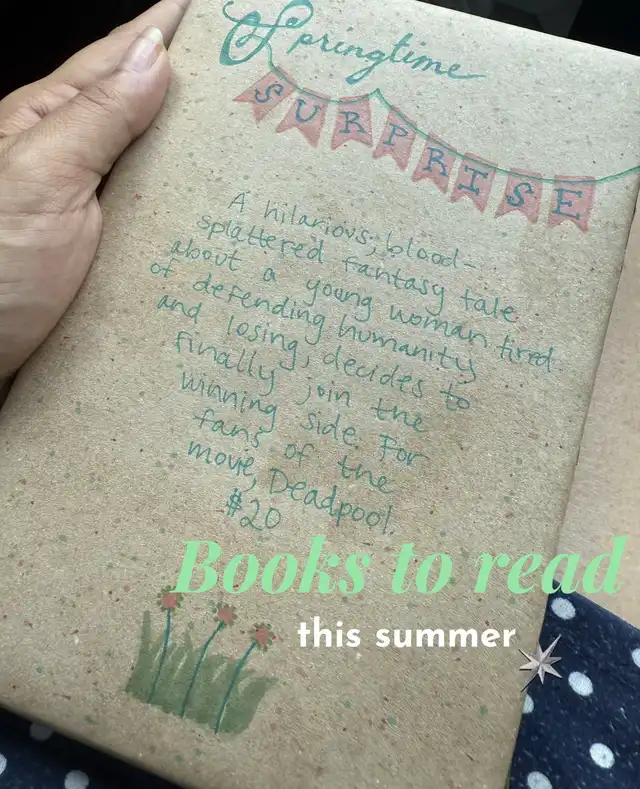 Springtime
SURPRISE
A hilarious, blood-
splattered fantasy tale
about a young woman tired
of defending humanity
and losing, decides to
finally join the
winning side. For
fans of the
movie, Deadpool.
$20
Books to read
this summer